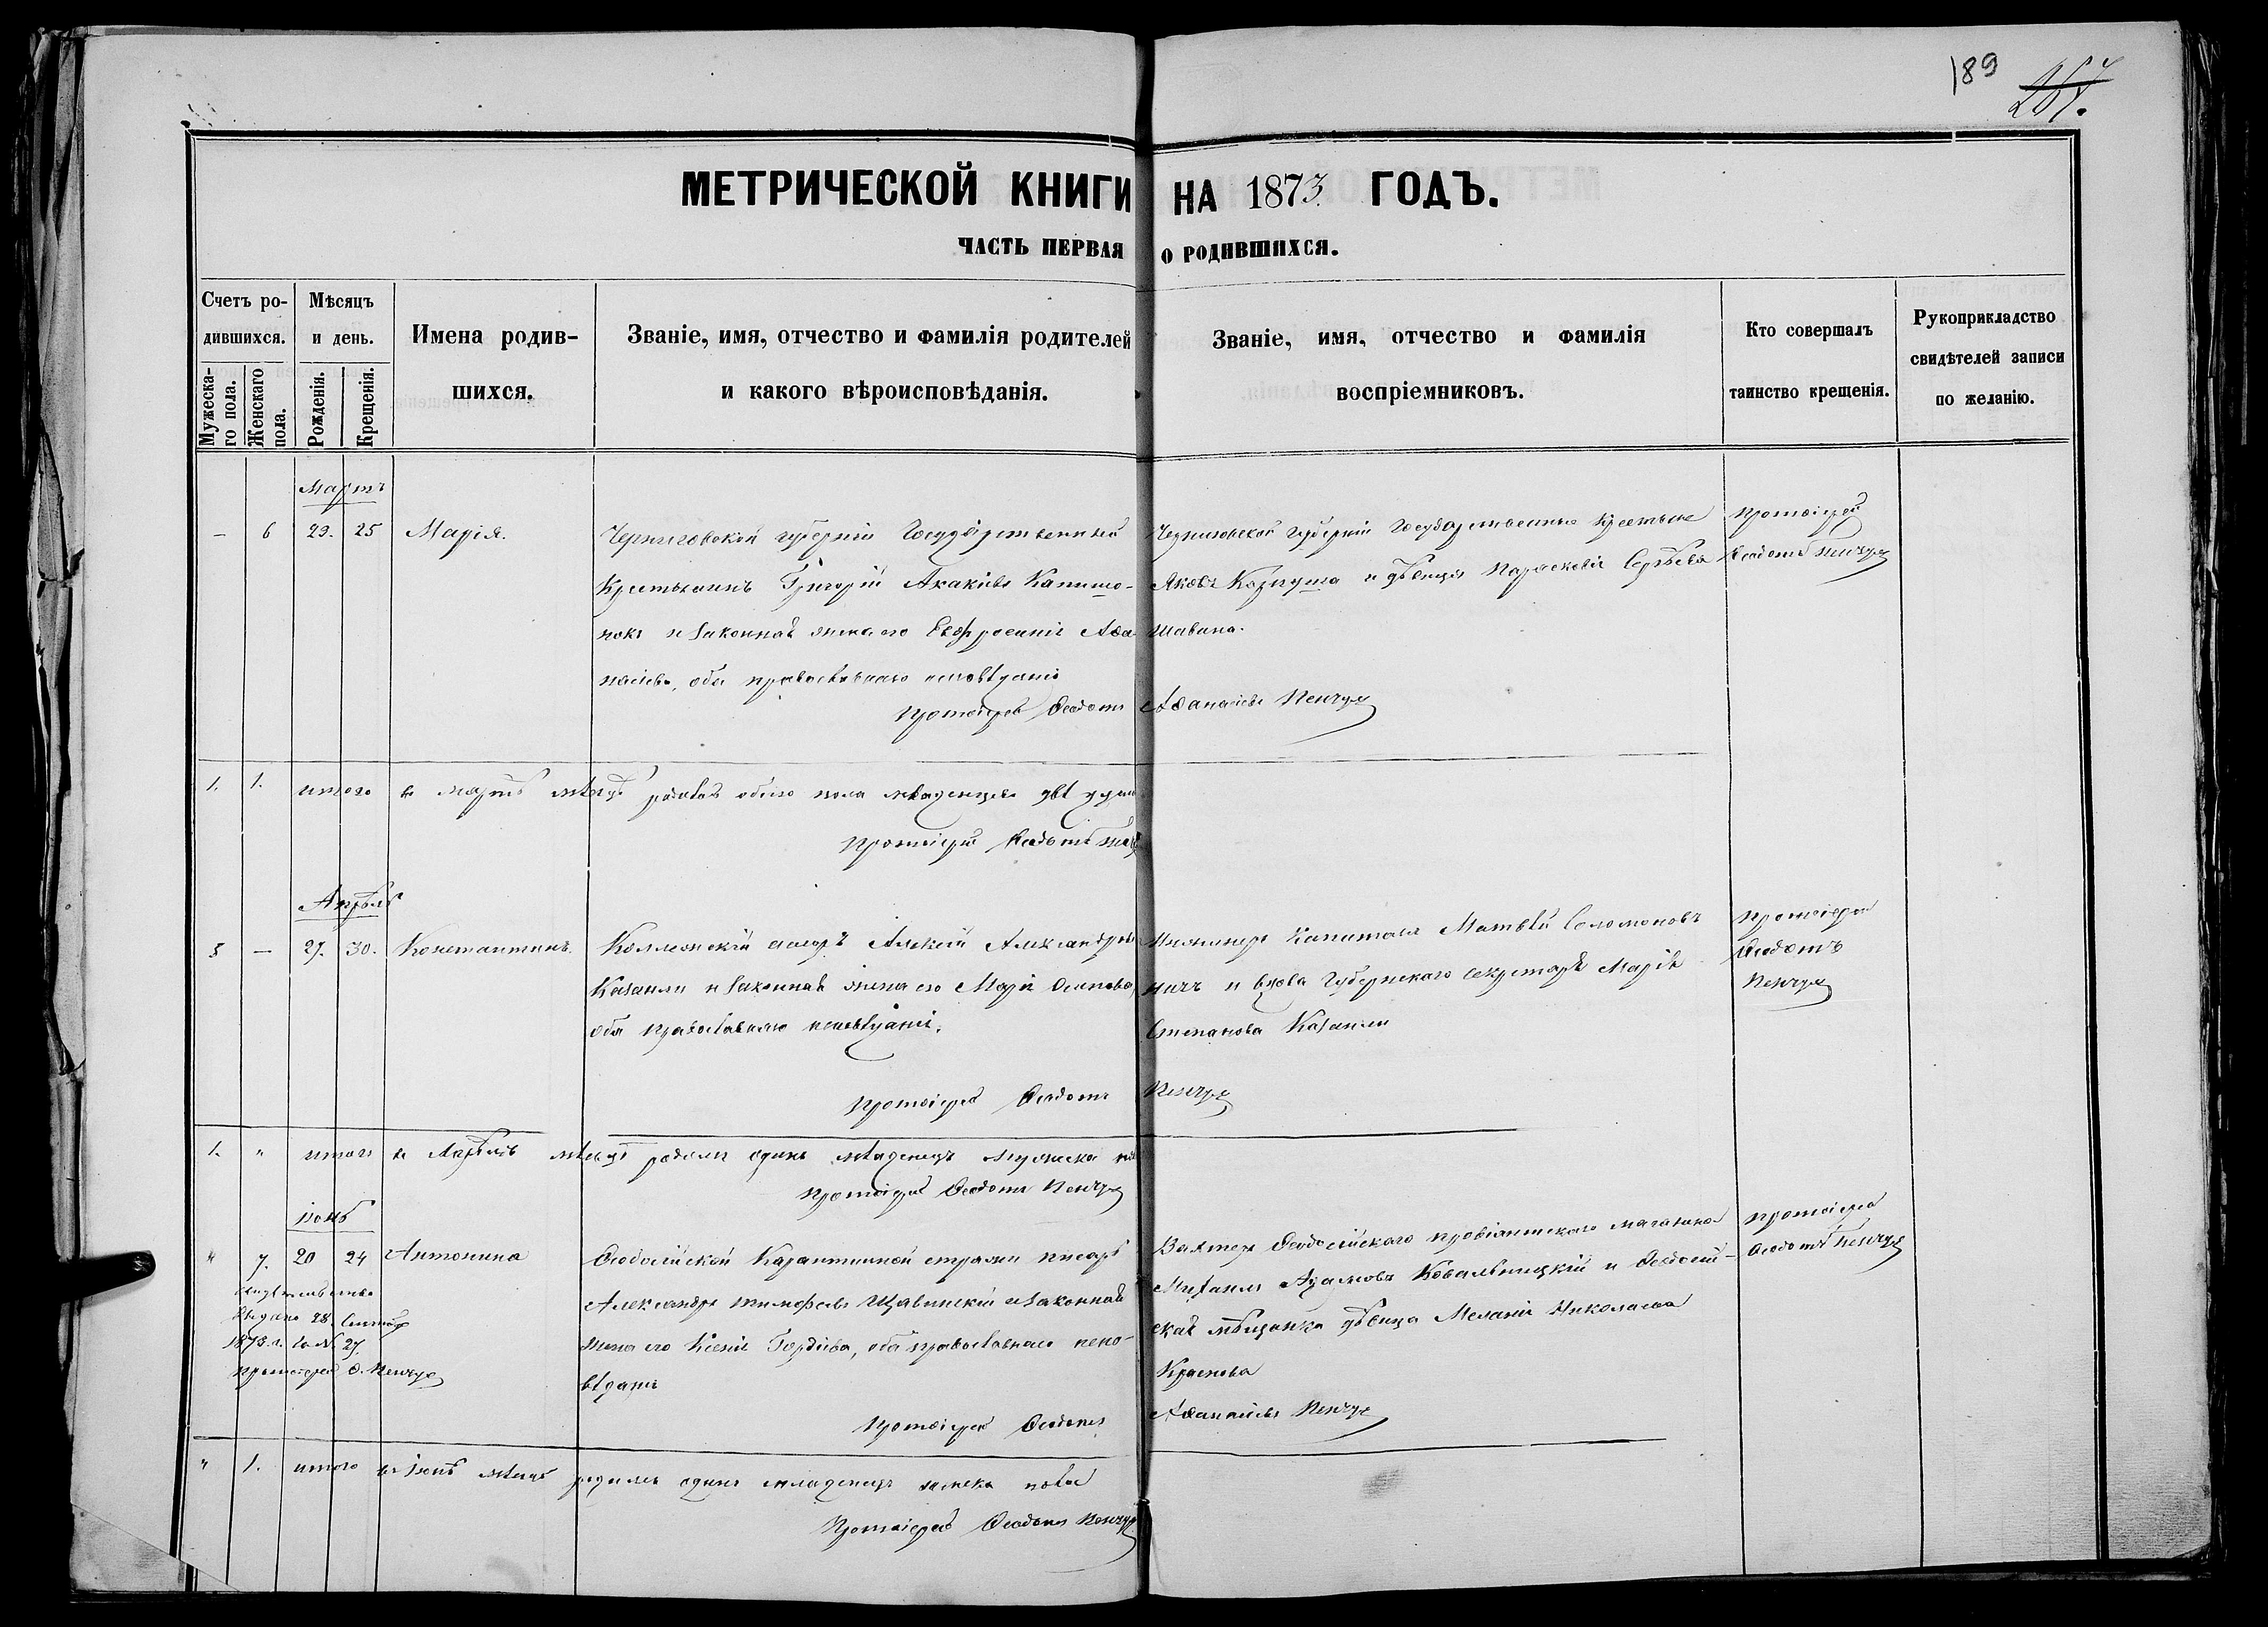 189
267.
МЕТРИЧЕСКОЙ КНИГИ НА 1873. ГОДЪ.
ЧАСТЬ ПЕРВАЯ О РОДИВШИХСЯ.
Счетъ ро-
дившихся.
Мужеска-
го пола.
Женскаго
пола.
Мѣсяцъ
и день.
Рожденія.
Крещенія.
Имена родив-
шихся.
Званіе, имя, отчество и фамилія родителей
и какого вѣроисповѣданія.
Званіе, имя, отчество и фамилія
воспріемниковъ.
Кто совершалъ
таинство крещенія.
Рукоприкладство
свидѣтелей записи
по желанію.
Мартъ
— 6 23. 25 Марія.
Черниговской губерніи Государственный
Крестьянинъ Григорій Акакіевъ Капишо-
нокъ и законная жена его Евфросинія Аѳа
насіева, оба православнаго исповѣданія
Черниговской губерніи Государственные крестьяне
Яковъ Карпуша и дѣвица Параскевія Сергѣева
Шавина.
Протоіерей
Ѳеодотъ Пенчук
Протоіерей Ѳеодотъ Аѳанасіевъ Пенчук
1. 1. итого въ мартѣ мѣсяцѣ родилось обоего пола младенцевъ двѣ души
Протоіерей Ѳеодотъ
Апрѣль
5 — 27. 30. Константинъ.
Коллежскій Алексій Александровъ
Казанли и законная жена его Марія Осипова,
оба православнаго исповѣданія.
Инженеръ Капитанъ Матвѣй Соломоновъ
и вдова Губернскаго секретаря Марія
Степанова Казанли
Протоіерей
Ѳеодотъ
Пенчук
Протоіерей Ѳеодотъ Пенчук
1. " итого въ Апрѣлѣ мѣсяцѣ родился одинъ младенецъ мужеска
Протоіерей Ѳеодотъ Пенчук
Іюнь
" 7. 20 24 Антонина
Свидѣтельство
Выдано 28.
1873 г. за № 27.
Протоіерей Ѳ. Пенчук
Ѳеодосійской Карантинной стражи писарь
Александръ Тимофеевъ Щавинскій и законная
жена его Ксенія Гордіева, оба православнаго испо-
вѣданія
Вахтеръ Ѳеодосійскаго провіантскаго магазина
Михаилъ Адамовъ Ковальницкій и Ѳеодосій-
ская мѣщанка дѣвица Меланія Николаева
Краснова
Протоіерей
Ѳеодотъ Пенчук
Протоіерей Ѳеодотъ Аѳанасіевъ Пенчук
" 1. итого въ Іюнѣ мѣсяцѣ родился одинъ младенецъ женска пола
Протоіерей Ѳеодотъ Пенчук